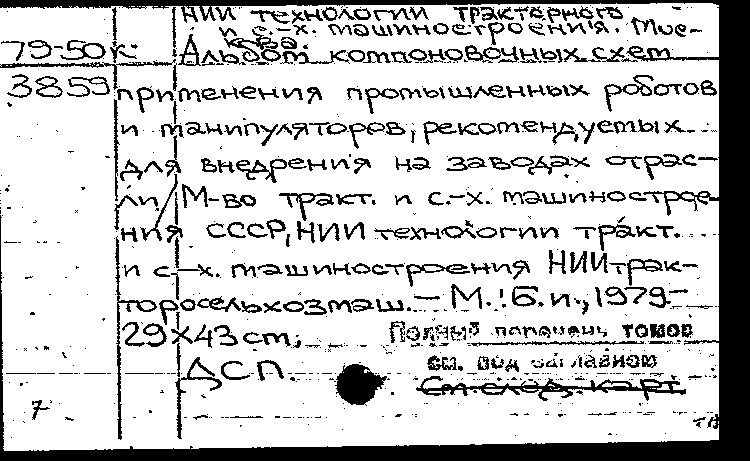 НИИ технологии тракторного
и с.-х. машиностроения. Мос-
ква.
79-50к Альбом компоновочных схем
3859 применения промышленных роботов
и манипуляторов, рекомендуемых
для внедрения на заводах отрас-
ли / М-во тракт. и с.-х. машинострое-
ния СССР, НИИ технологии тракт.
и с.-х. машиностроения НИИтрак-
торосельхозмаш. — М.: Б.и., 1979.—
29×43 cm.
Полный перечень томов
ДСП.
см. под заглавном
См. след. карт.
7